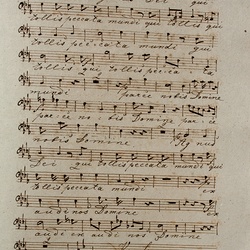 Dei qui
tollis peccata mundi qui tollis qui
tollis peccata mundi qui
tollis qui tollis pecca_ta
mundi parce nobis Domine
parce no_bis Domine par_ce
nobis Domine Agnus
Dei qui tollis peccata mundi qui
tollis peccata mundi ex
audi nos Domine ex
audi ex audi nos Domine